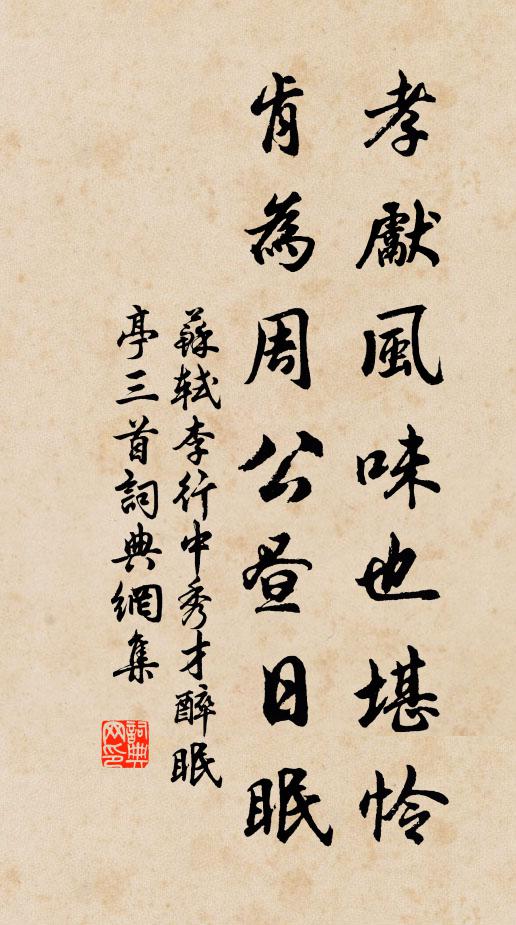 孝獻風味也堪怜
肯為周公晝日眠
蘇軾李行中秀才醉眠
亭三首詞典網集
詞典網印